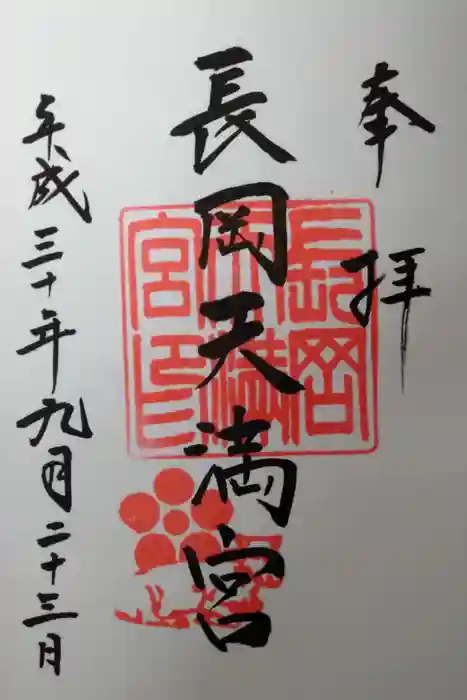 奉拝
長岡天満宮
長岡天満宮印
平成三十年九月二十三日